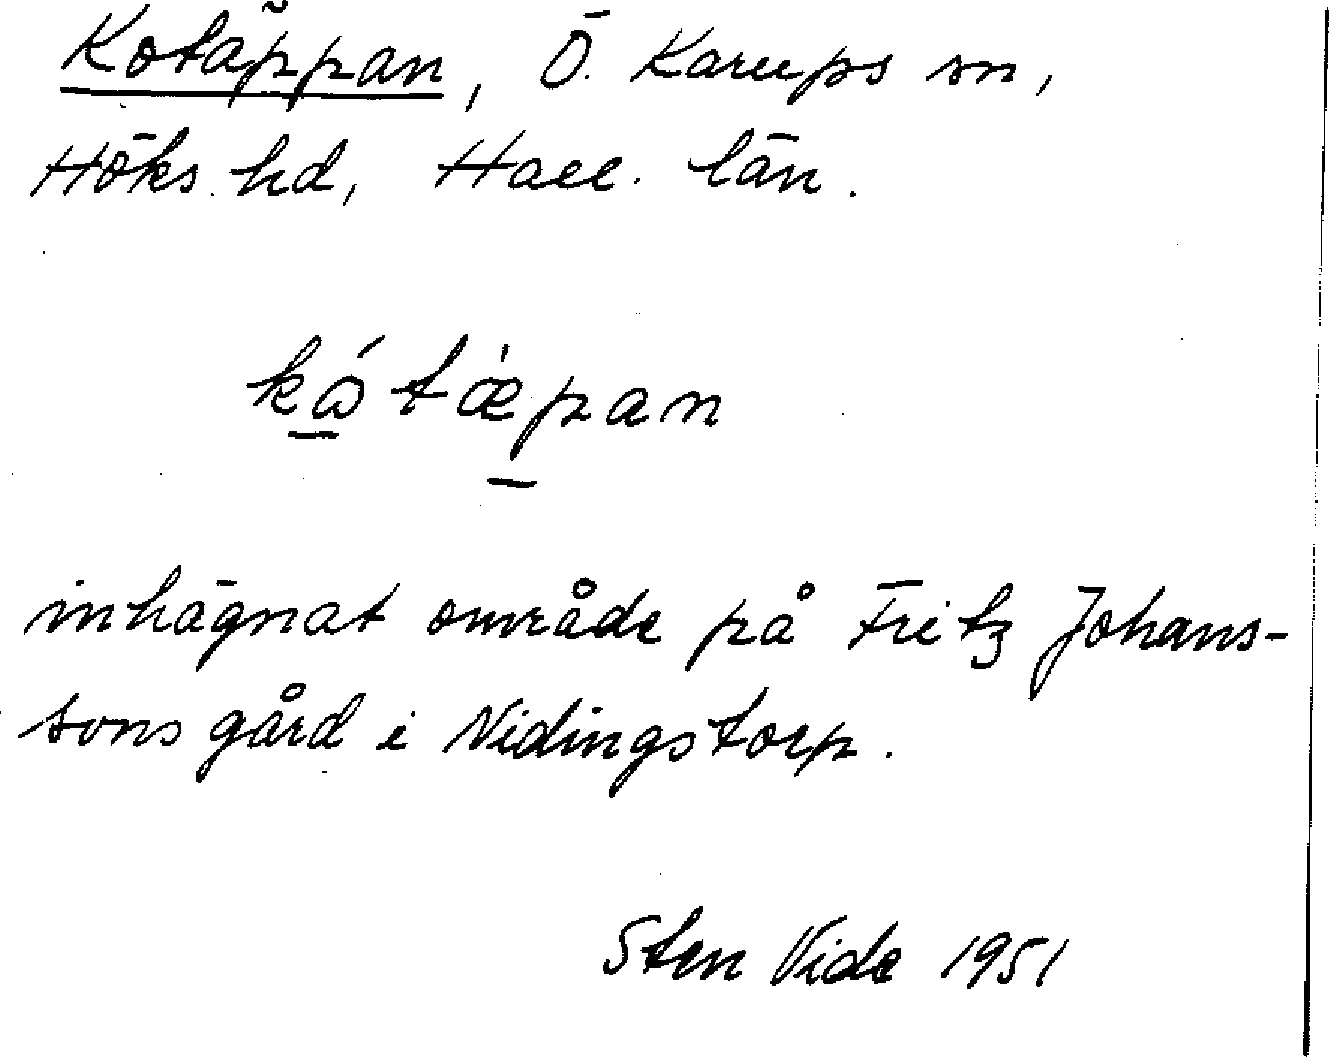 Kotäppan, Ö. Karups sn,
Höks hd, Hall. län.
kǿtæ̀pan
inhägnat område på Fritz Johans-
sons gård i Nidingstorp.
Sten Vide 1951